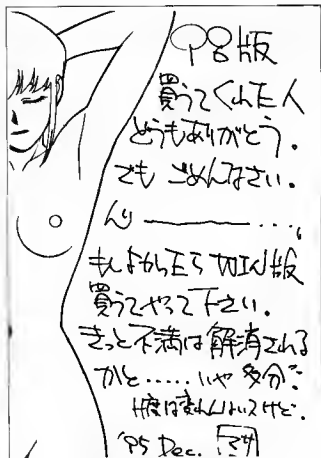 98版
買ってくれた人
どうもありがとう。
でも ごめんなさい。
んり ———…。
もしよかったら TOWN版
買ってやって下さい。
きっと不満は解消される
かと……いや 多分…
H度は変わんないけど。
'95 Dec. マサ